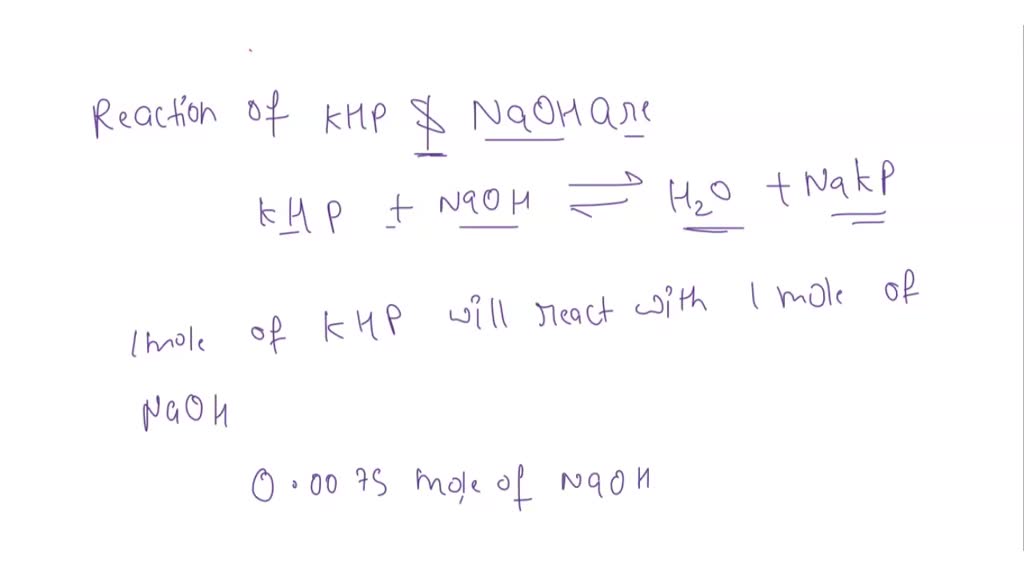 Reaction of KHP & NaOH are
KHP + NaOH ⇌ H₂O + NaKP
1 mole of KHP will react with 1 mole of
NaOH
0.0075 mole of NaOH